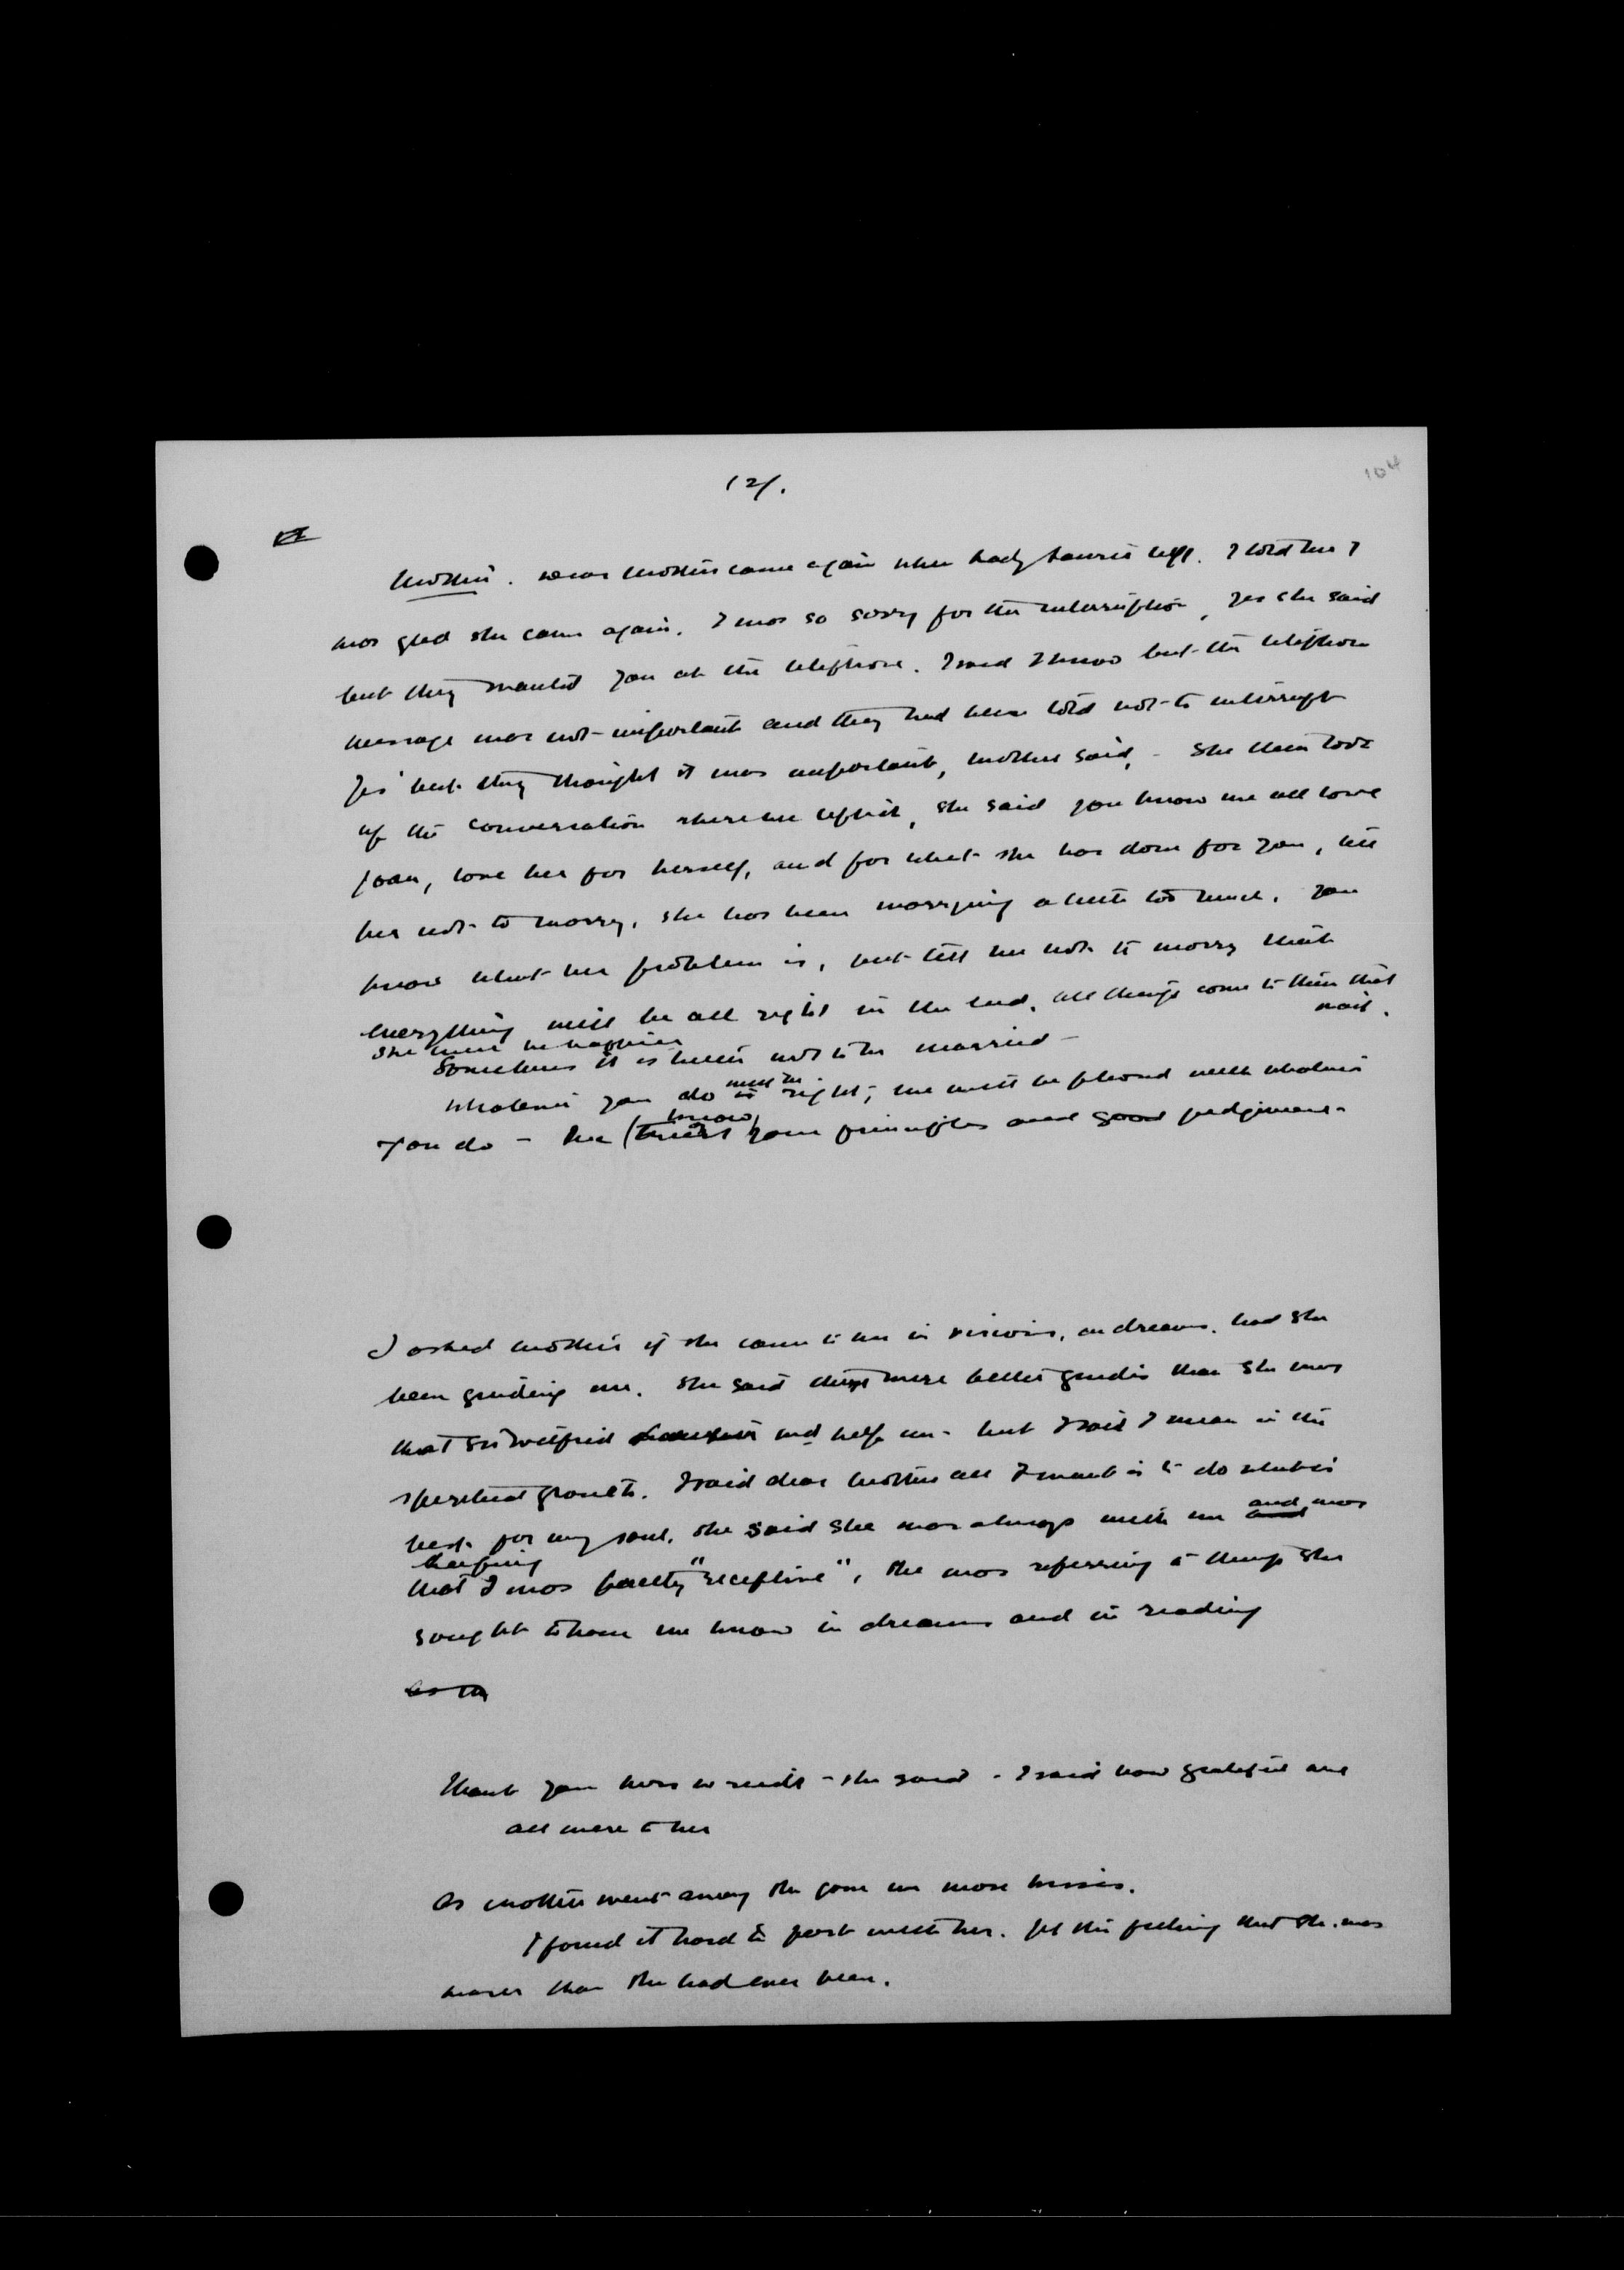 12/.
104
Mother. Dear Mother came again when Lady Laurier left. I told her I
was glad she came again. I was so sorry for the interruption, Yes she said
but they wanted you at the telephone. I said I know but the telephone
message was not important and they had been told not to interrupt
Yes but they thought it was important, mother said, - She then took
up the conversation where we left it, she said you know we all love
Joan, love her for herself, and for what she has done for you, tell
her not to worry, she has been worrying a little too much. You
know what her problem is, but tell her not to worry that
everything will be all right in the end. All things come to them that
wait.
she will be happier
Sometimes it is better not to be married -
Whatever you do is must be right; we will be pleased with whatever
know
You do - We (trust) your principles and good judgment
I asked mother if she came to me in visions, or dreams. had she
been guiding me. She said there were better guides than she was
that Sir Wilfrid did help me - but I said I mean in the
spiritual growth. I said dear mother all I want is to do what is
best for my soul. She said she was always with me and and was
helping
that I was pretty "receptive", she was referring to things she
sought to have me know in dreams and in reading
as in
Thank you she said - I said how grateful we
all were to her
As mother went away she gave me more kisses.
I found it hard to part with her. Yet the feeling that she was
nearer than she had ever been.